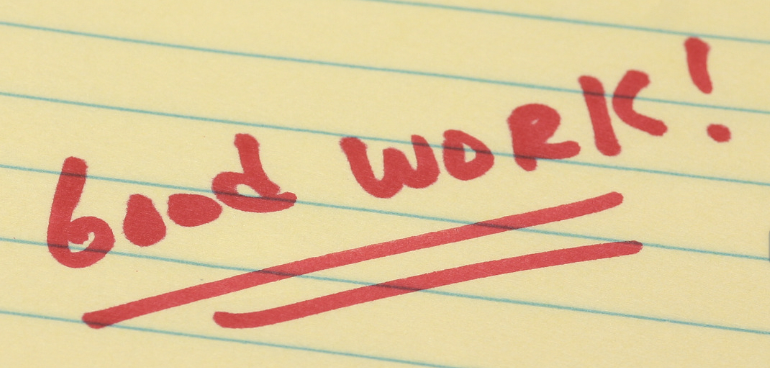 Good WORK!